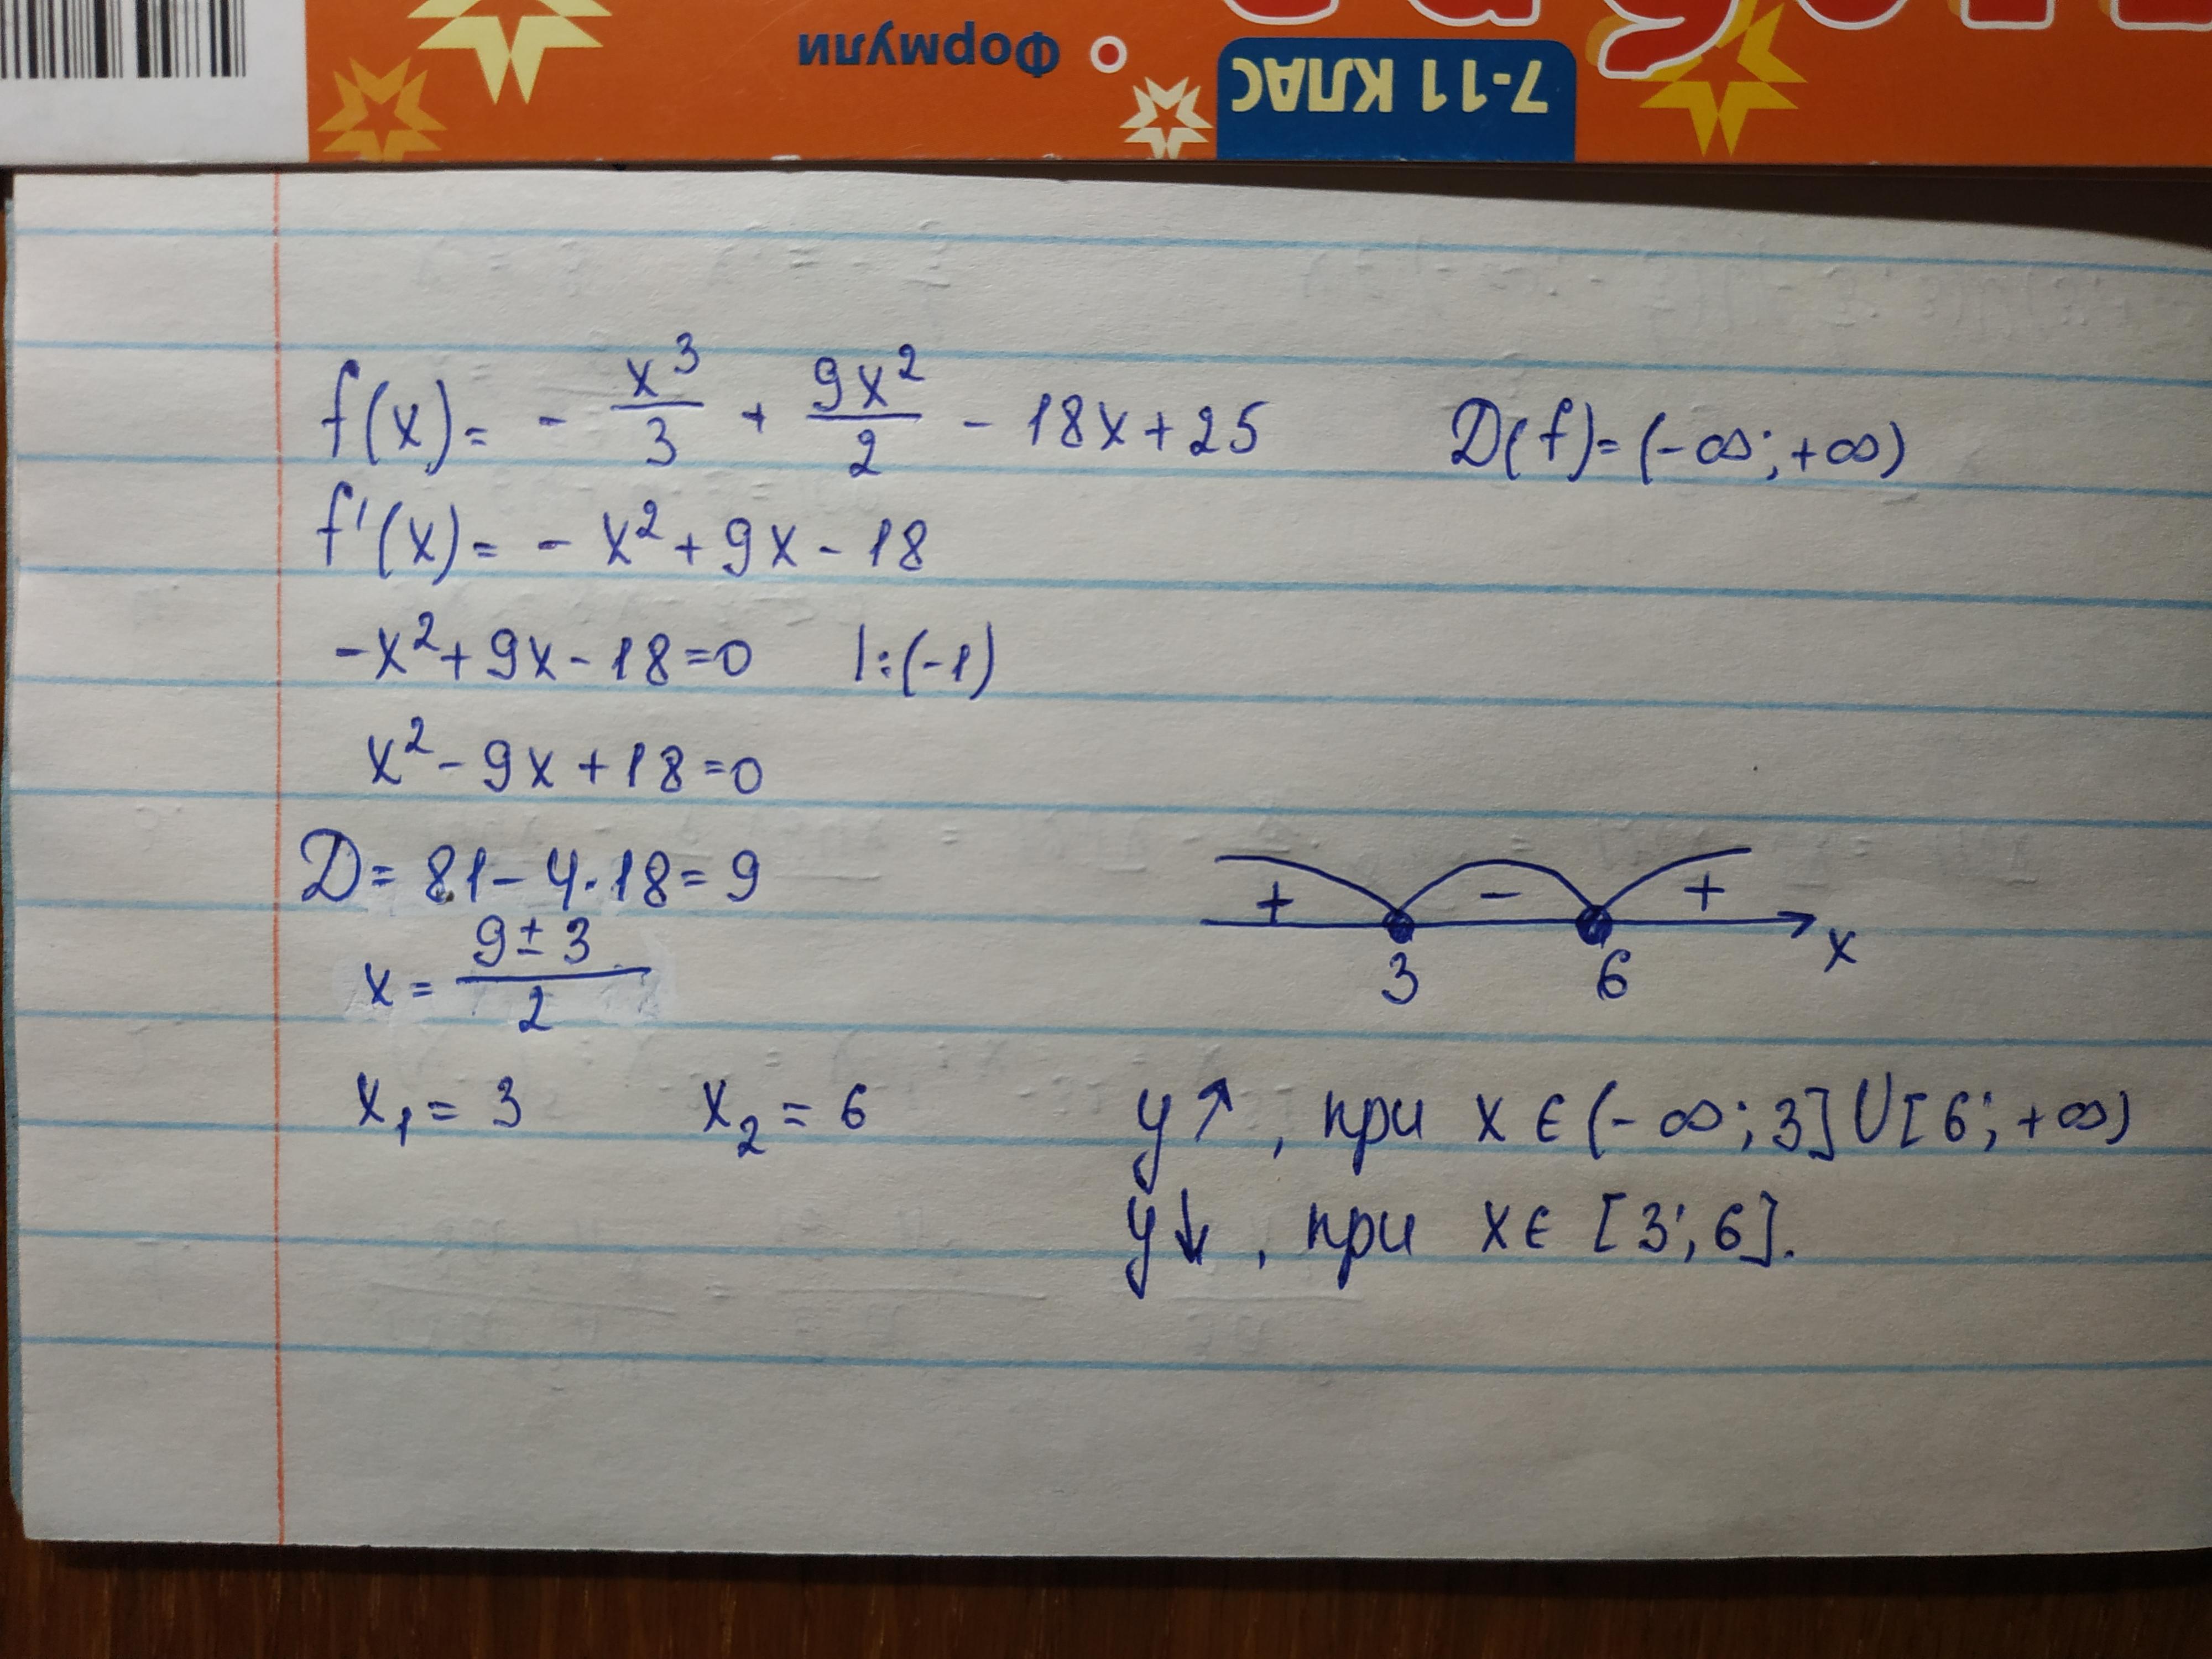 Формули
7-11 КЛАС
f(x) = - x³/3 + 9x²/2 - 18x + 25
D(f) = (-∞; +∞)
f'(x) = - x² + 9x - 18
-x² + 9x - 18 = 0 |:(-1)
x² - 9x + 18 = 0
D = 81 - 4·18 = 9
x = (9 ± 3)/2
x₁ = 3 x₂ = 6
+ - +
3 6 x
y↑, при x ∈ (-∞; 3] U [6; +∞)
y↓, при x ∈ [3; 6].